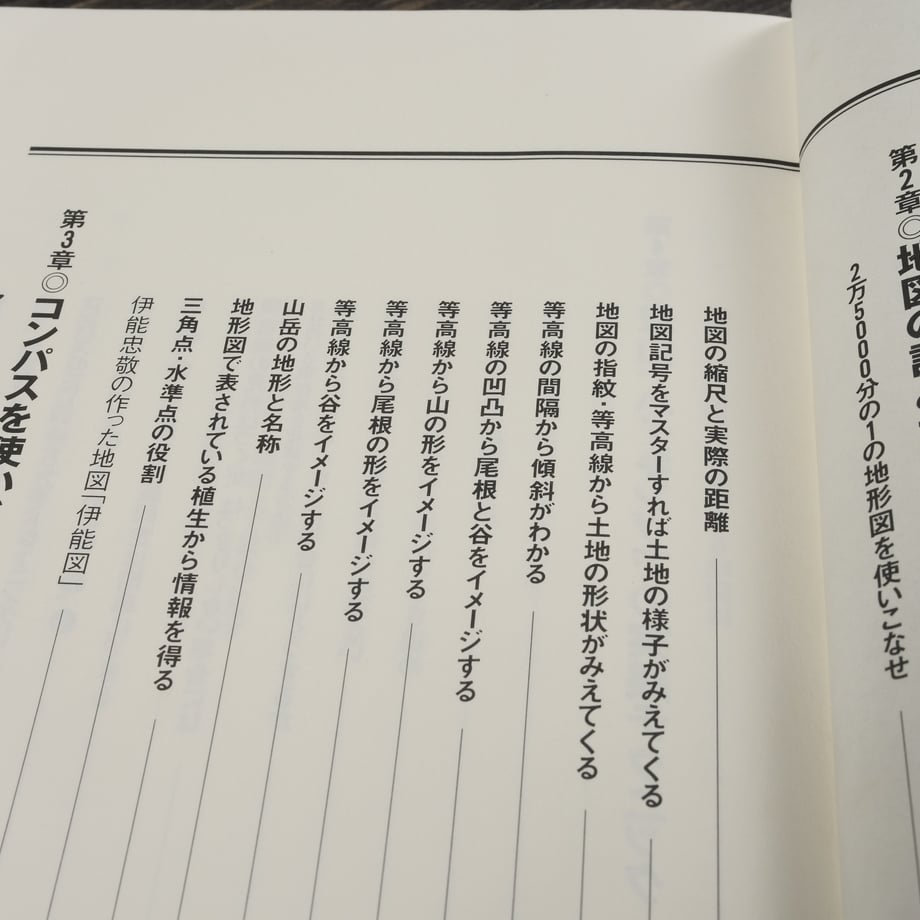 第2章◎地図の
2万5000分の1の地形図を使いこなせ
地図の縮尺と実際の距離
地図記号をマスターすれば土地の様子がみえてくる
地図の指紋・等高線から土地の形状がみえてくる
等高線の間隔から傾斜がわかる
等高線の凹凸から尾根と谷をイメージする
等高線から山の形をイメージする
等高線から尾根の形をイメージする
等高線から谷をイメージする
山岳の地形と名称
地形図で表されている植生から情報を得る
三角点・水準点の役割
伊能忠敬の作った地図「伊能図」
第3章◎コンパスを使い、